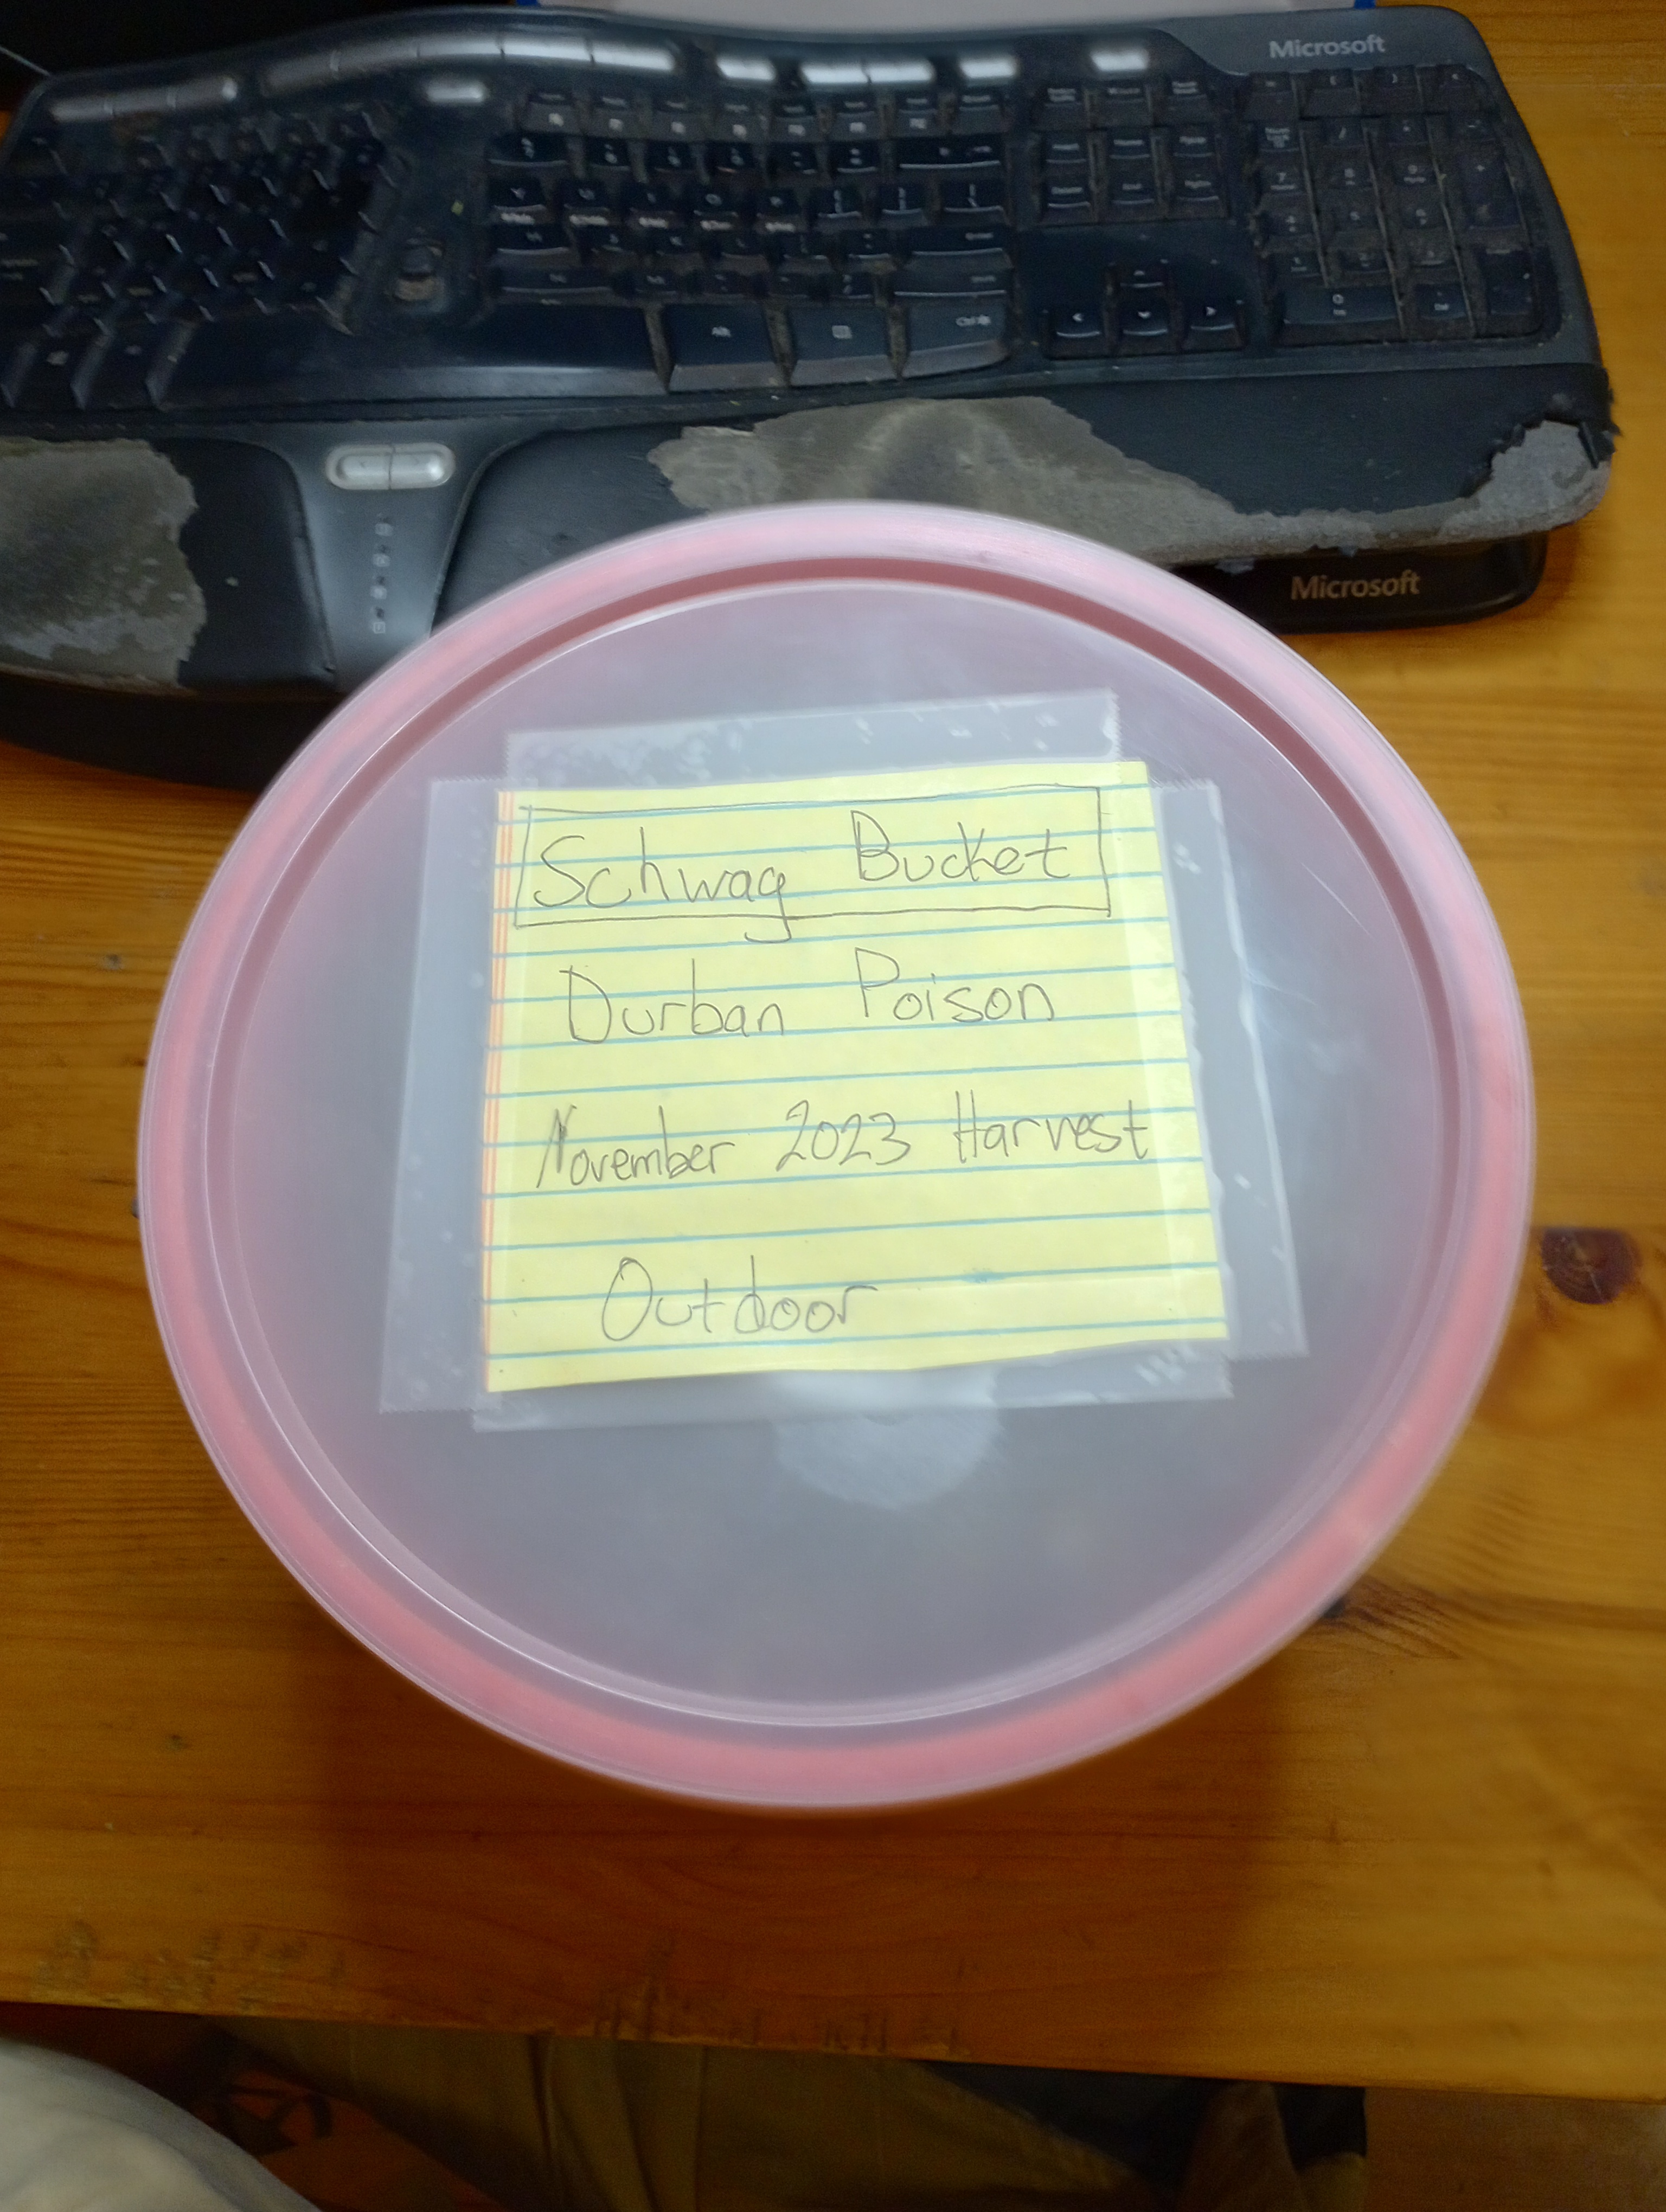 Microsoft
Alt
Ctrl
Microsoft
Schwag Bucket
Durban Poison
November 2023 Harvest
Outdoor